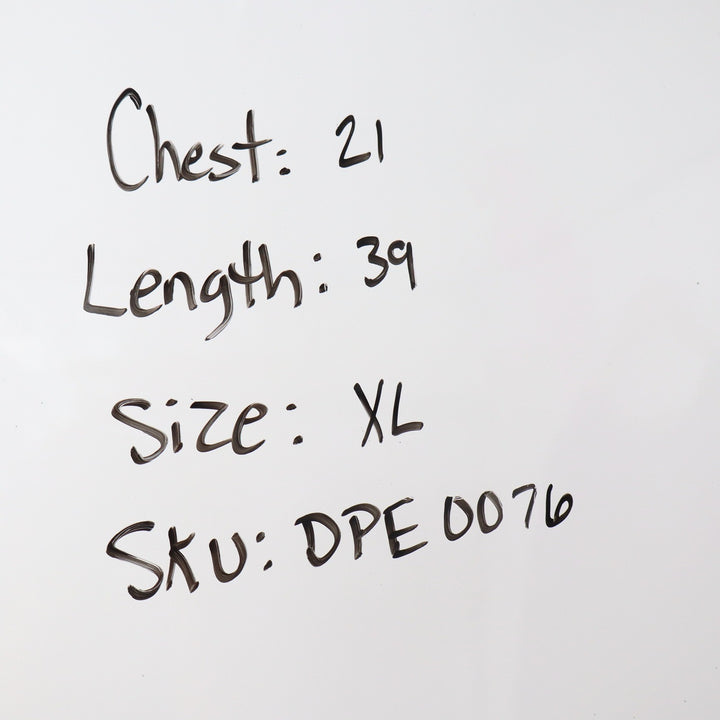 Chest: 21
Length: 39
Size: XL
SKU: DPE 0076